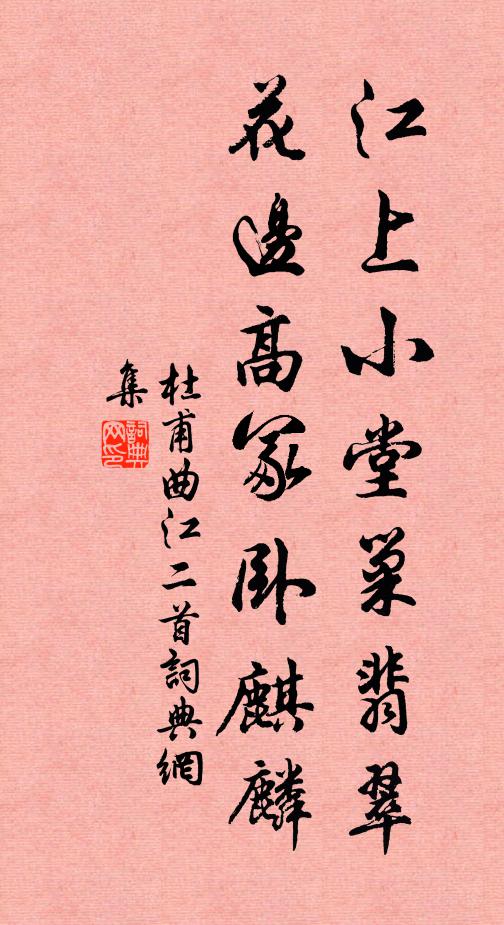 江上小堂巢翡翠
花邊高冢臥麒麟
杜甫曲江二首詞典網
集
詞典
网印